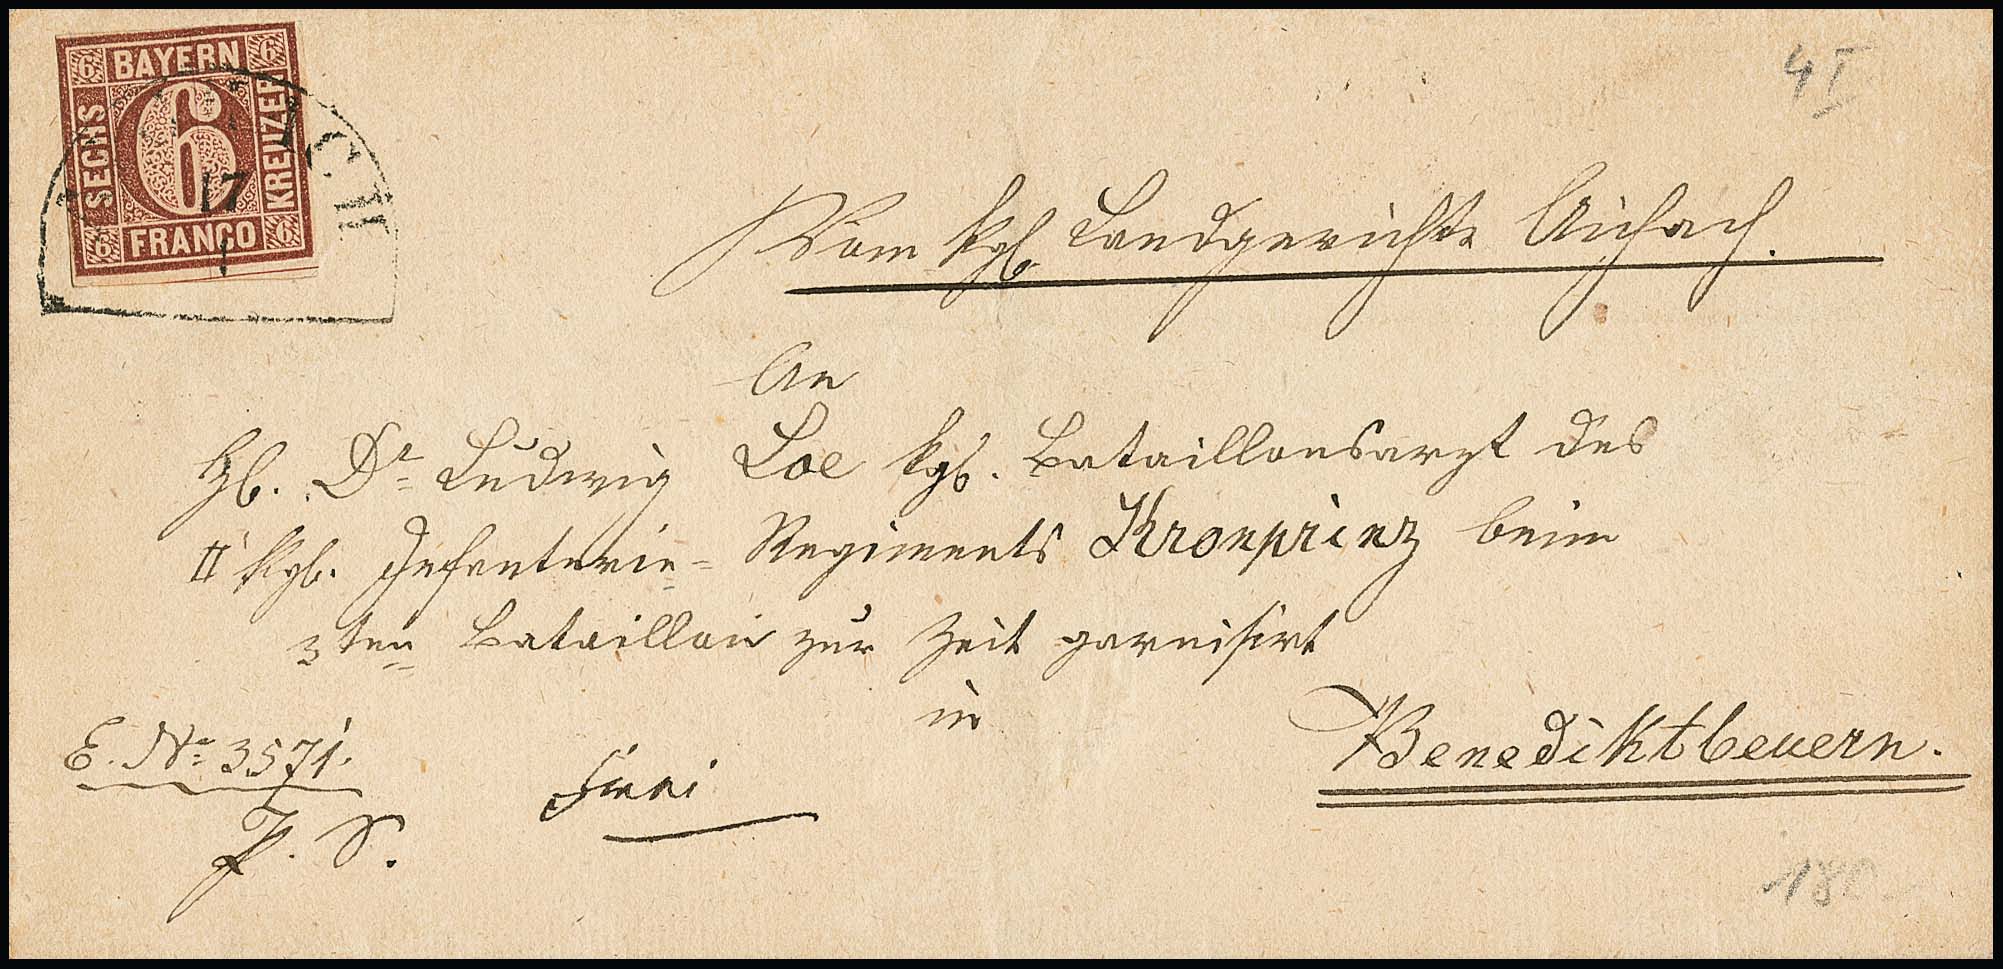 BAYERN
SECHS
6
KREUZER
FRANCO
6 6 6 6
AICH
17
1
4 I
Vom kgl. Landgerichte Aichach.
An
H. Dr Ludwig Loe kgl. Bataillonsarzt des
II kgl. Infanterie- Regiments Kronprinz beim
3ten Bataillon zur Zeit garnisirt
in
Benediktbeuern.
E. No 3571.
P. S.
frei
180